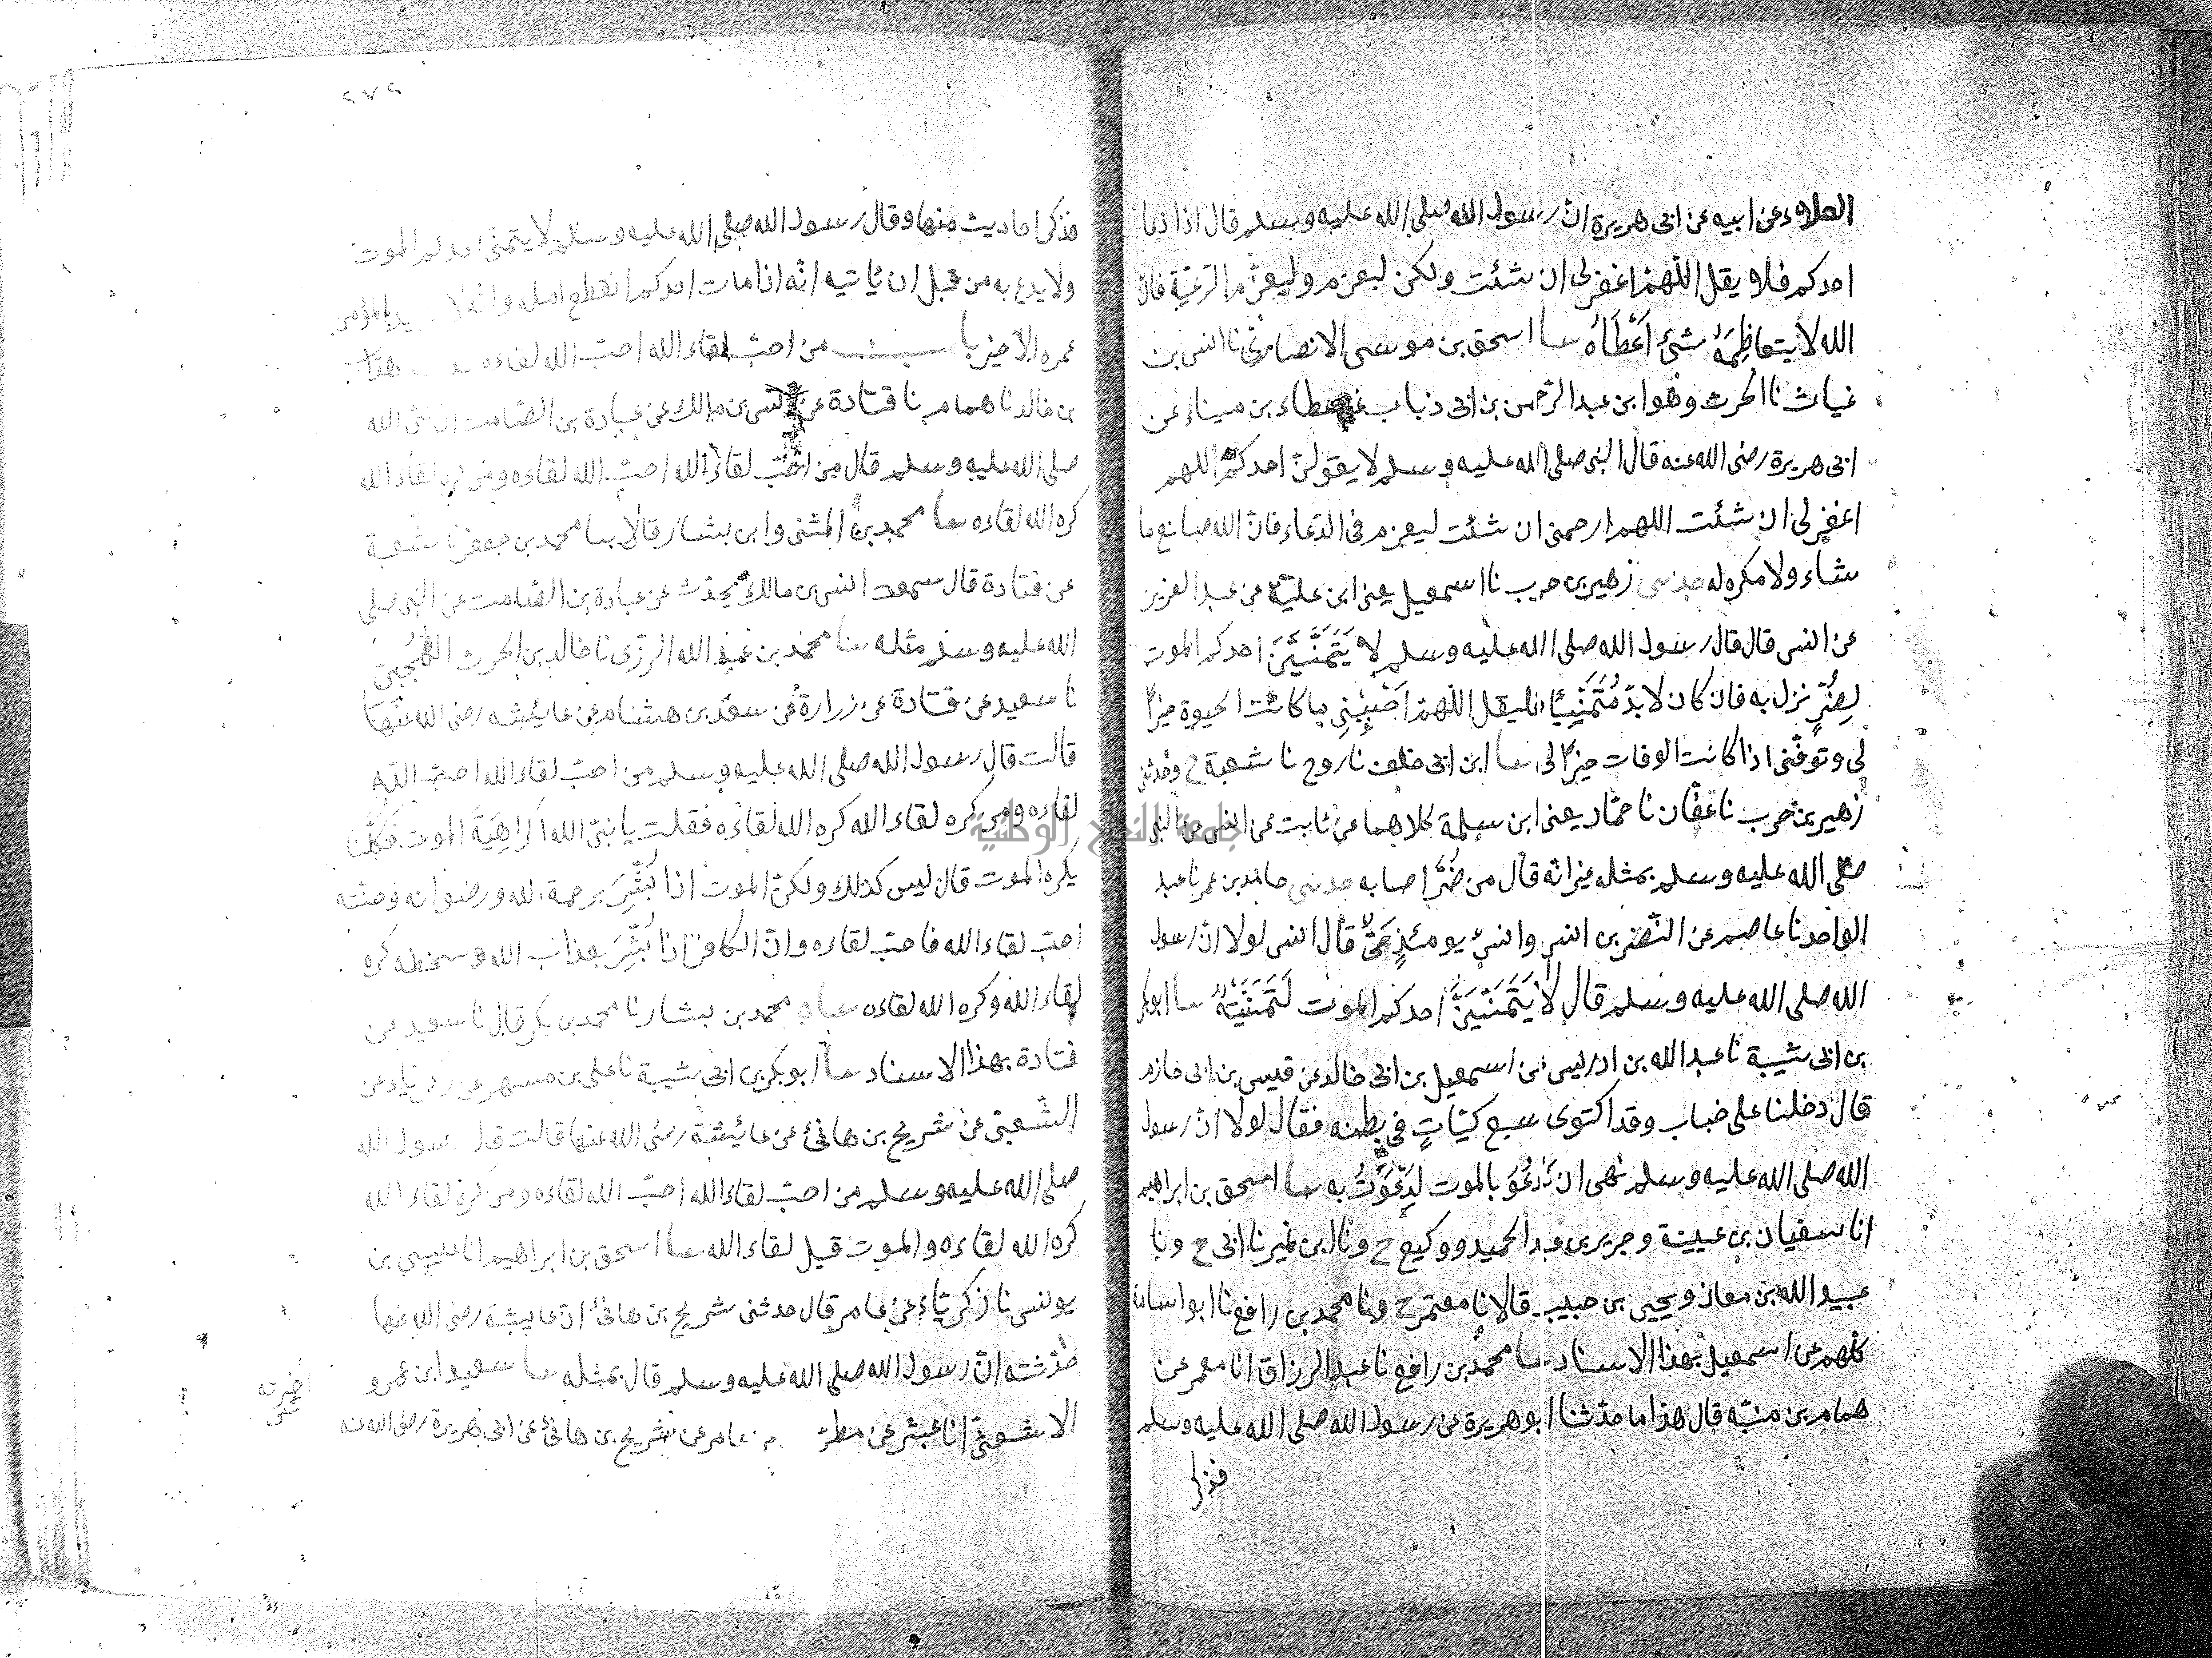 العلاء عن ابيه عن ابى هريرة ان رسول الله صلى الله عليه وسلم قال اذا دعا
احدكم فلا يقل اللهم اغفر لى ان شئت ولكن ليعزم وليعظم الرغبة فان
الله لا يتعاظمه شئ اعطاه حدثنا اسحق بن موسى الانصارى نا انس بن
عياض نا الحرث وهو ابن عبد الرحمن بن ابى ذباب عن عطاء بن ميناء عن
ابى هريرة رضى الله عنه قال النبى صلى الله عليه وسلم لا يقولن احدكم اللهم
اغفر لى ان شئت اللهم ارحمنى ان شئت ليعزم فى الدعاء فان الله صانع ما
شاء ولا مكره له حدثنى زهير بن حرب نا اسمعيل يعنى ابن علية عن عبد العزيز
عن انس قال قال رسول الله صلى الله عليه وسلم لا يَتَمَنَّيَنَّ احدكم الموت
لِضُرٍّ نزل به فان كان لا بدّ مُتَمَنِّيًا فليقل اللهم اَحْيِنِى ما كانت الحيوة خيرًا
لى وتوفنى اذا كانت الوفات خيرًا لى حدثنا ابن ابى خلف نا روح نا شعبة ح وحدثنى
زهير بن حرب نا عفان نا حماد يعنى ابن سلمة كلاهما عن ثابت عن انس عن النبى
صلى الله عليه وسلم بمثله غير انه قال من ضُرّ اصابه حدثنى حامد بن عمر نا عبد
الواحد نا عاصم عن النضر بن انس وانس يومئذٍ حَىٌّ قال انس لولا ان رسول
الله صلى الله عليه وسلم قال لا يَتَمَنَّيَنَّ احدكم الموت لَتَمَنَّيْتُهُ حدثنا ابو بكر
بن ابى شيبة نا عبد الله بن ادريس عن اسمعيل بن ابى خالد عن قيس بن ابى حازم
قال دخلنا على خباب وقد اكتوى سبع كيّاتٍ فى بطنه فقال لولا ان رسول
الله صلى الله عليه وسلم نهى ان نَدْعُوَ بالموت لَدَعَوْتُ به حدثنا اسحق بن ابراهيم
انا سفيان بن عيينة وجرير بن عبد الحميد ووكيع ح ونا ابن نمير نا ابى ح ونا
عبيد الله بن معاذ ويحيى بن حبيب قالا نا معتمر ح ونا محمد بن رافع نا ابو اسامة
كلهم عن اسمعيل بهذا الاسناد حدثنا محمد بن رافع نا عبد الرزاق انا معمر عن
همام بن منبه قال هذا ما حدثنا ابو هريرة عن رسول الله صلى الله عليه وسلم
فذكر
٢٧٢
فذكر احاديث منها وقال رسول الله صلى الله عليه وسلم لا يتمنى احدكم الموت
ولا يدع به من قبل ان ياتيه انه اذا مات احدكم انقطع امله وانه لا يزيد المؤمن
عمره الا خير باب من احب لقاء الله احب الله لقاءه حدثنا هدّاب
بن خالد نا همام نا قتادة عن انس بن مالك عن عبادة بن الصامت ان نبى الله
صلى الله عليه وسلم قال من احب لقاء الله احب الله لقاءه ومن كره لقاء الله
كره الله لقاءه حدثنا محمد بن المثنى وابن بشار قالا نا محمد بن جعفر نا شعبة
عن قتادة قال سمعت انس بن مالك يحدّث عن عبادة بن الصامت عن النبى صلى
الله عليه وسلم مثله حدثنا محمد بن عبد الله الرزى نا خالد بن الحرث الهُجَيمى
نا سعيد عن قتادة عن زرارة عن سعد بن هشام عن عائيشه رضى الله عنها
قالت قال رسول الله صلى الله عليه وسلم من احب لقاء الله احب الله
لقاءه ومن كره لقاء الله كره الله لقاءه فقلت يا نبى الله اكراهِيَةَ الموت فكلنا
يكره الموت قال ليس كذلك ولكن الموت اذا بُشِّرَ برحمة الله ورضوانه وجنته
احب لقاء الله فاحب لقاءه وان الكافر اذا بُشِّرَ بعذاب الله وسخطه كره
لقاء الله وكره الله لقاءه حدثناه محمد بن بشار نا محمد بن بكر قال نا سعيد عن
قتادة بهذا الاسناد حدثنا ابو بكر بن ابى شيبة نا على بن مسهر عن زكرياء عن
الشعبى عن شريح بن هانئ عن عائيشة رضى الله عنها قالت قال رسول الله
صلى الله عليه وسلم من احب لقاء الله احب الله لقاءه ومن كره لقاء الله
كره الله لقاءه والموت قبل لقاء الله حدثنا اسحق بن ابراهيم انا عيسى بن
يونس نا زكرياء عن عامر قال حدثنى شريح بن هانئ ان عايشة رضى الله عنها
حدثته ان رسول الله صلى الله عليه وسلم قال بمثله حدثنا سعيد ابن عمرو
الاشعثى انا عبثر عن مطرّ عامر عن شريح بن هانئ عن ابى هريرة رضى الله عنه
جامعة النجاح الوطنية